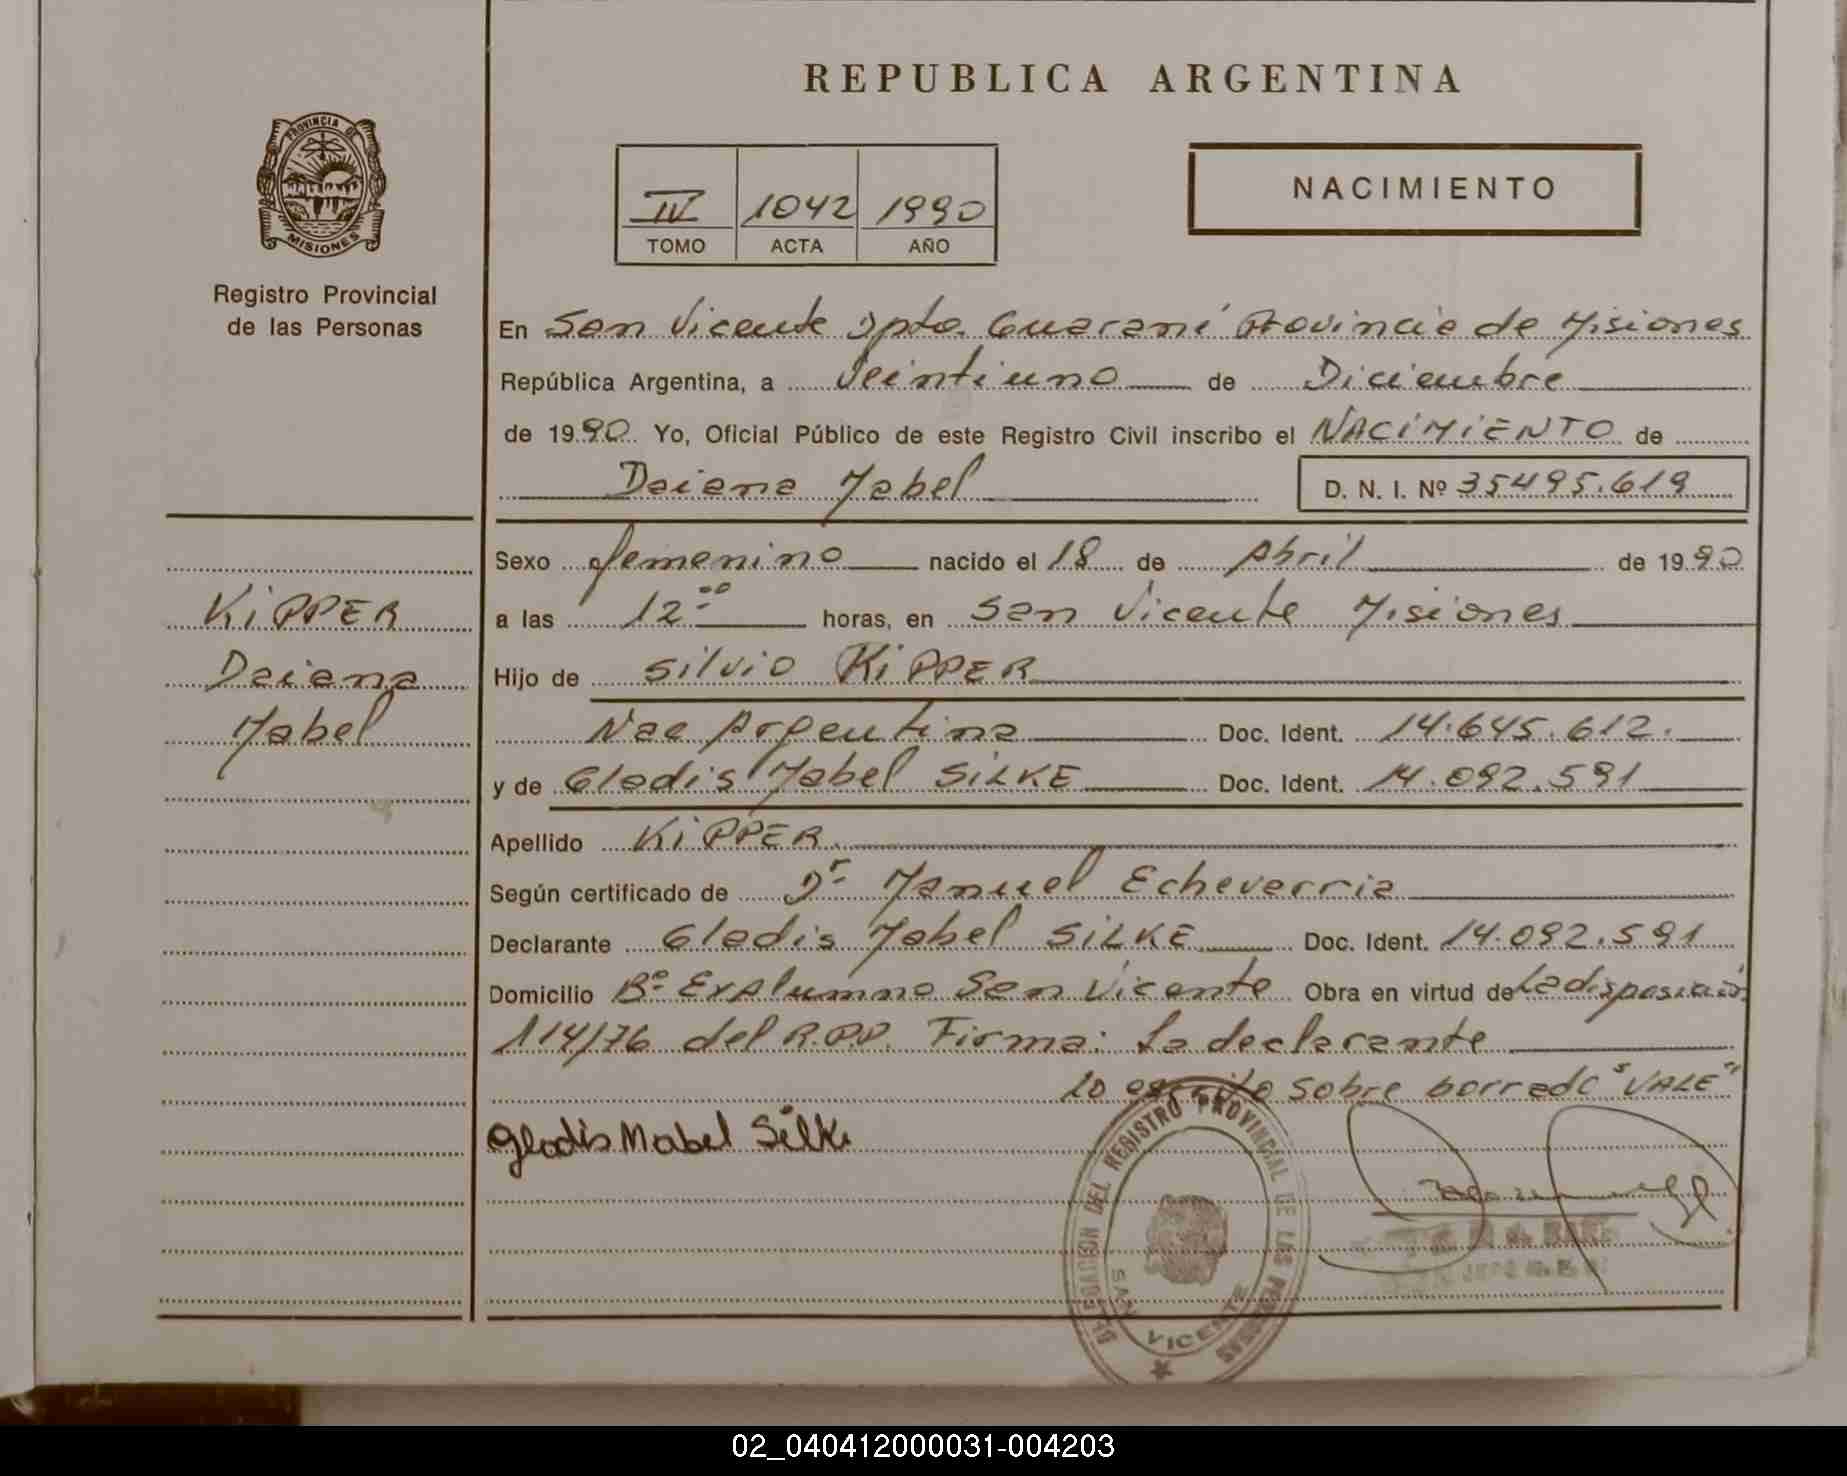 REPUBLICA ARGENTINA
PROVINCIA DE
MISIONES
Registro Provincial
de las Personas
IV 1042 1990
TOMO ACTA AÑO
NACIMIENTO
En San Vicente Dpto. Guaraní Provincia de Misiones
República Argentina, a Veintiuno de Diciembre
de 1990 Yo, Oficial Público de este Registro Civil inscribo el NACIMIENTO de
Daiana Mabel D. N. I. Nº 35495.619
Sexo femenino nacido el 18 de Abril de 1990
a las 12 00 horas, en San Vicente Misiones
Hijo de Silvio KIPPER
Nac Argentina Doc. Ident. 14.645.612.
y de Gladis Mabel SILKE Doc. Ident. 14.092.591
Apellido KIPPER.
Según certificado de Dr Manuel Echeverria
Declarante Gladis Mabel SILKE Doc. Ident. 14.092.591
Domicilio Bº Exalumno San Vicente Obra en virtud de La disposición
114/76 del R.P.P. Firma: La declarante
Lo escrito sobre borrado "VALE"
Gladis Mabel Silke
KIPPER
Daiana
Mabel
DELEGACION DEL REGISTRO PROVINCIAL DE LAS PERSONAS
SAN VICENTE
02_040412000031-004203